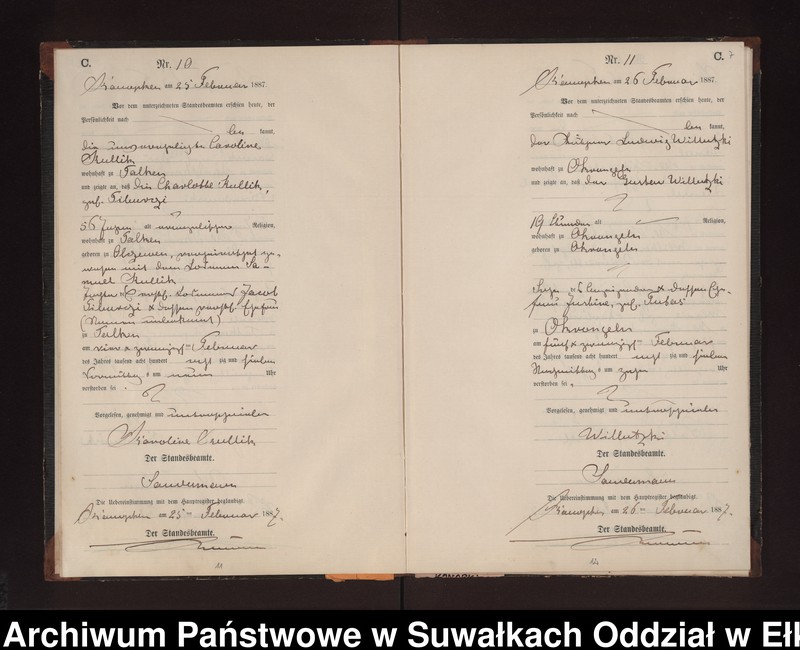 C.
Nr. 10
am 25 Februar 1887.
Vor dem unterzeichneten Standesbeamten erschien heute, der
Persönlichkeit nach
kannt,
die unverehelichte Caroline
Kullik
wohnhaft zu Talken
und zeigte an, daß die Charlotte Kullik,
geb.
56 Jahre alt evangelischer Religion,
wohnhaft zu Talken
geboren zu Olszewen, verheirathet ge-
wesen mit dem Losmann Sa-
muel Kullik
Tochter des Losmanns Jacob
(Namen unbekannt)
zu Talken
am vier & zwanzigsten Februar
des Jahres tausend acht hundert acht zig und sieben
Vormittags um neun Uhr
verstorben sei.
Vorgelesen, genehmigt und unterschrieben
Karoline Kullik
Der Standesbeamte.
Sandermann
Die Uebereinstimmung mit dem Hauptregister beglaubigt.
am 25ten Februar 1887.
Der Standesbeamte.
Nr. 11
C. 7
am 26 Februar 1887.
Vor dem unterzeichneten Standesbeamten erschien heute, der
Persönlichkeit nach
kannt,
der Ludwig Willutzki
wohnhaft zu Okrongeln
und zeigte an, daß der Gustav Willutzki
19 Stunden alt Religion,
wohnhaft zu Okrongeln
geboren zu Okrongeln
Sohn des Anzeigenden & dessen Ehe-
frau Justine, geb.
zu Okrongeln
am fünf & zwanzigsten Februar
des Jahres tausend acht hundert acht zig und sieben
Nachmittags um zehn Uhr
verstorben sei.
Vorgelesen, genehmigt und unterschrieben
Willutzki
Der Standesbeamte.
Sandermann
Die Uebereinstimmung mit dem Hauptregister beglaubigt.
am 26ten Februar 1887.
Der Standesbeamte.
Archiwum Państwowe w Suwałkach Oddział w Ełk